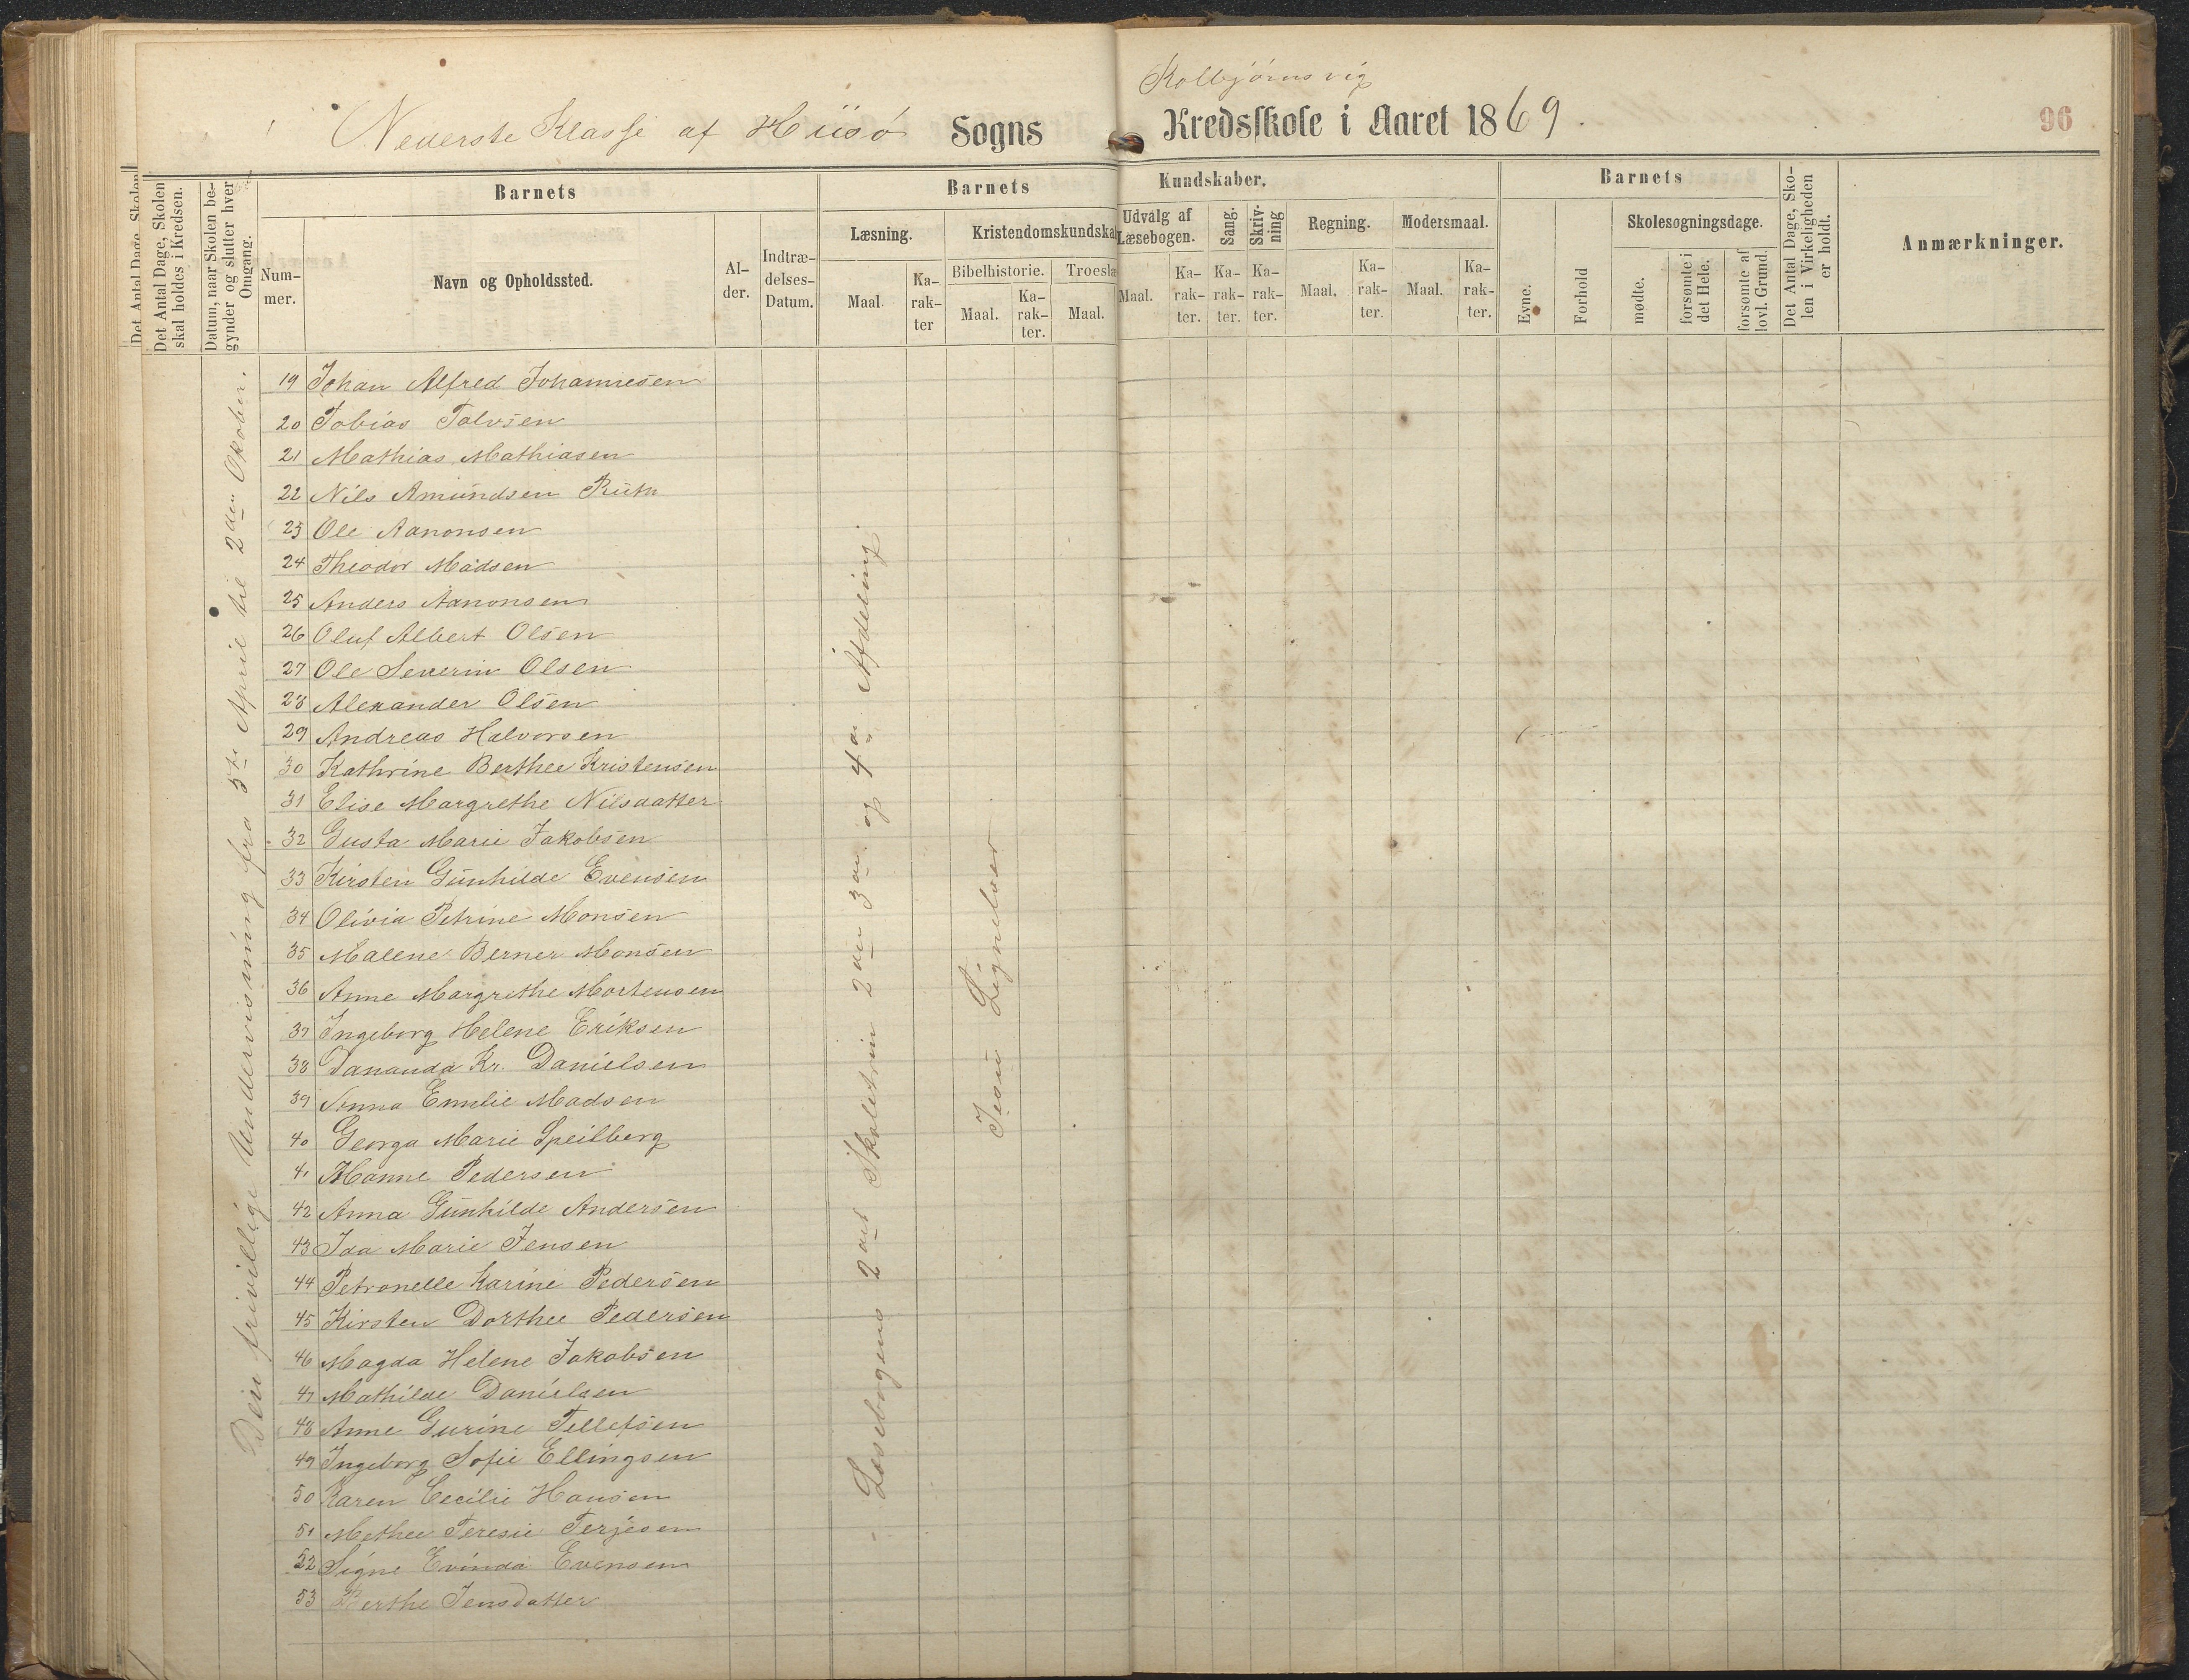 Kolbjørnsvig
Nederste Klasse af Hiisø Sogns Kredsskole i Aaret 1869.
96
Det Antal Dage, Skolen
Det Antal Dage, Skolen skal holdes i Kredsen.
Datum, naar Skolen begynder og slutter hver Omgang.
Barnets
Barnets Kundskaber.
Barnets
Det Antal Dage, Skolen i Virkeligheden er holdt.
Anmærkninger.
Nummer.
Navn og Opholdssted.
Alder.
Indtrædelses-Datum.
Læsning.
Kristendomskundska
Udvalg af Læsebogen.
Sang.
Skrivning
Regning.
Modersmaal.
Evne.
Forhold
Skolesøgningsdage.
Bibelhistorie.
Troeslæ
Maal.
Karakter
Maal.
Karakter.
Maal.
Maal.
Karakter.
Karakter.
Karakter.
Maal.
Karakter.
Maal.
Karakter.
mødte.
forsømte i det Hele.
forsømte af lovl. Grund.
Den frivillige Undervisning fra 5te April til 2den Oktober.
19 Johan Alfred Johannesen
20 Tobias Talvsen
21 Mathias Mathiasen
22 Nils Amundsen Ruth
23 Ole Aanonsen
24 Theodor Madsen
25 Anders Aanonsen
26 Oluf Albert Olsen
27 Ole Severin Olsen
28 Alexander Olsen
29 Andreas Halvorsen
30 Kathrine Berthee Kristensen
31 Elise Margrethe Nilsdatter
32 Gusta Marie Jakobsen
33 Kirsten Gunhilde Evensen
34 Olivia Petrine Monsen
35 Malene Berner Monsen
36 Anne Margrethe Mortensen
37 Ingeborg Helene Eriksen
38 Dananda Kr. Danielsen
39 Anna Emelie Madsen
40 Georga Marie Speilberg
41 Hanne Pedersen
42 Anna Gunhilde Andersen
43 Ida Marie Jensen
44 Petronelle Karine Pedersen
45 Kirsten Dorthee Pedersen
46 Magda Helene Jakobsen
47 Mathilde Danielsen
48 Anne Gurine Tellefsen
49 Ingeborg Sofie Ellingsen
50 Karen Cecilie Hansen
51 Methee Teresie Terjesen
52 Signe Evinda Evensen
53 Berthe Jensdatter
Læsebogens 2det Skoletrin 2den 3die og 4de Afdeling.
Jesu Lignelser